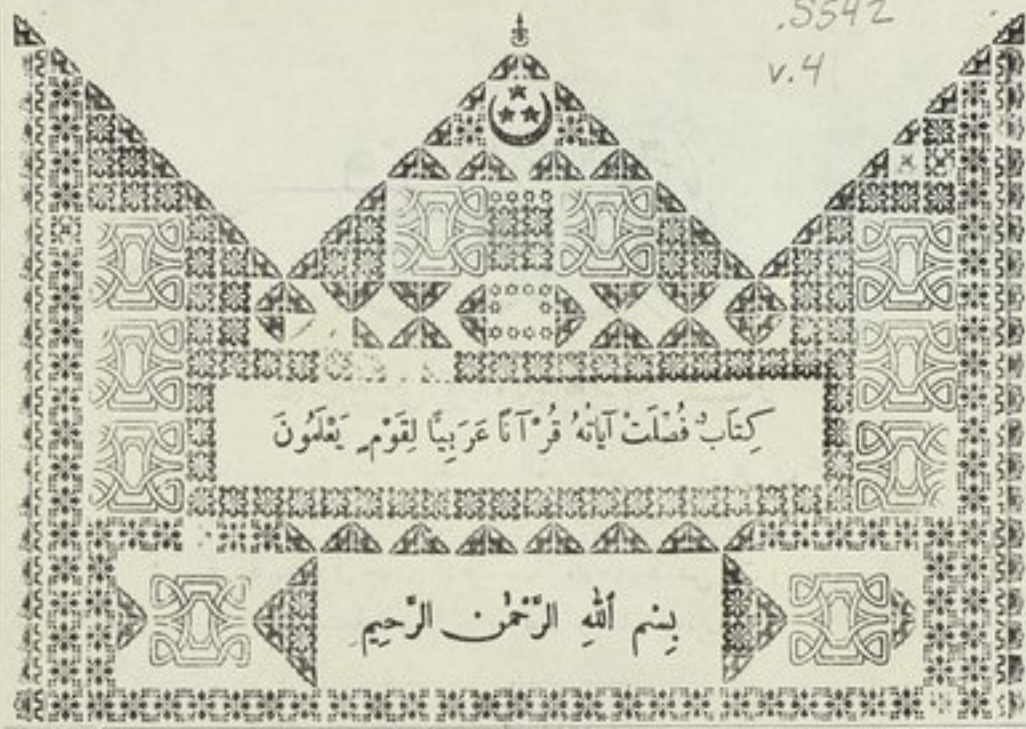 .S542
v.4
كِتَابٌ فُصِّلَتْ آيَاتُهُ قُرْآنًا عَرَبِيًّا لِقَوْمٍ يَعْلَمُونَ
بِسْمِ ٱللهِ الرَّحْمٰنِ الرَّحِيمِ